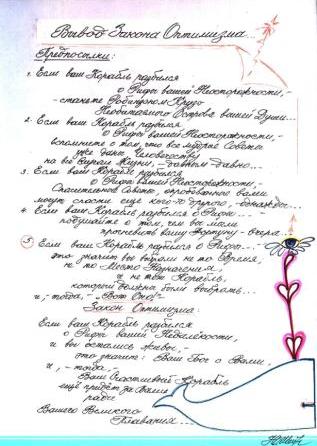 Вывод Закона Оптимизма...
Предпосылки:
1. Если ваш Корабль разбился
о Рифы вашей Неосторожности, –
– станьте Робинзоном Крузо
Необитаемого Острова вашей Души...
2. Если ваш Корабль разбился
о Рифы вашей Неосторожности, –
вспомните о том, что все мудрые Советы
уже даны Человечеству
на все случаи Жизни, – давным-давно...
3. Если ваш Корабль разбился
о Рифы вашей
Спасительные Советы, вами
могут спасти ещё кого-то другого, однажды...
4. Если ваш Корабль разбился о Рифы... –
– подумайте о том, чем вы могли
прогневить вашу Фортуну – вчера...
5. Если ваш Корабль разбился о Рифы... –
это значит вы выбрали не то Время,
не то Место Назначения,
и не тот Корабль,
который должны были выбрать...
и, тогда, – "Вот Оно!" –
Закон Оптимизма:
Если ваш Корабль разбился
о Рифы вашей Недалёкости,
и вы остались живы, –
– это значит: Ваш Бог с Вами...
и, – тогда, –
Ваш Счастливый Корабль
ещё придёт за Вами
ради
Вашего Великого
Плавания...